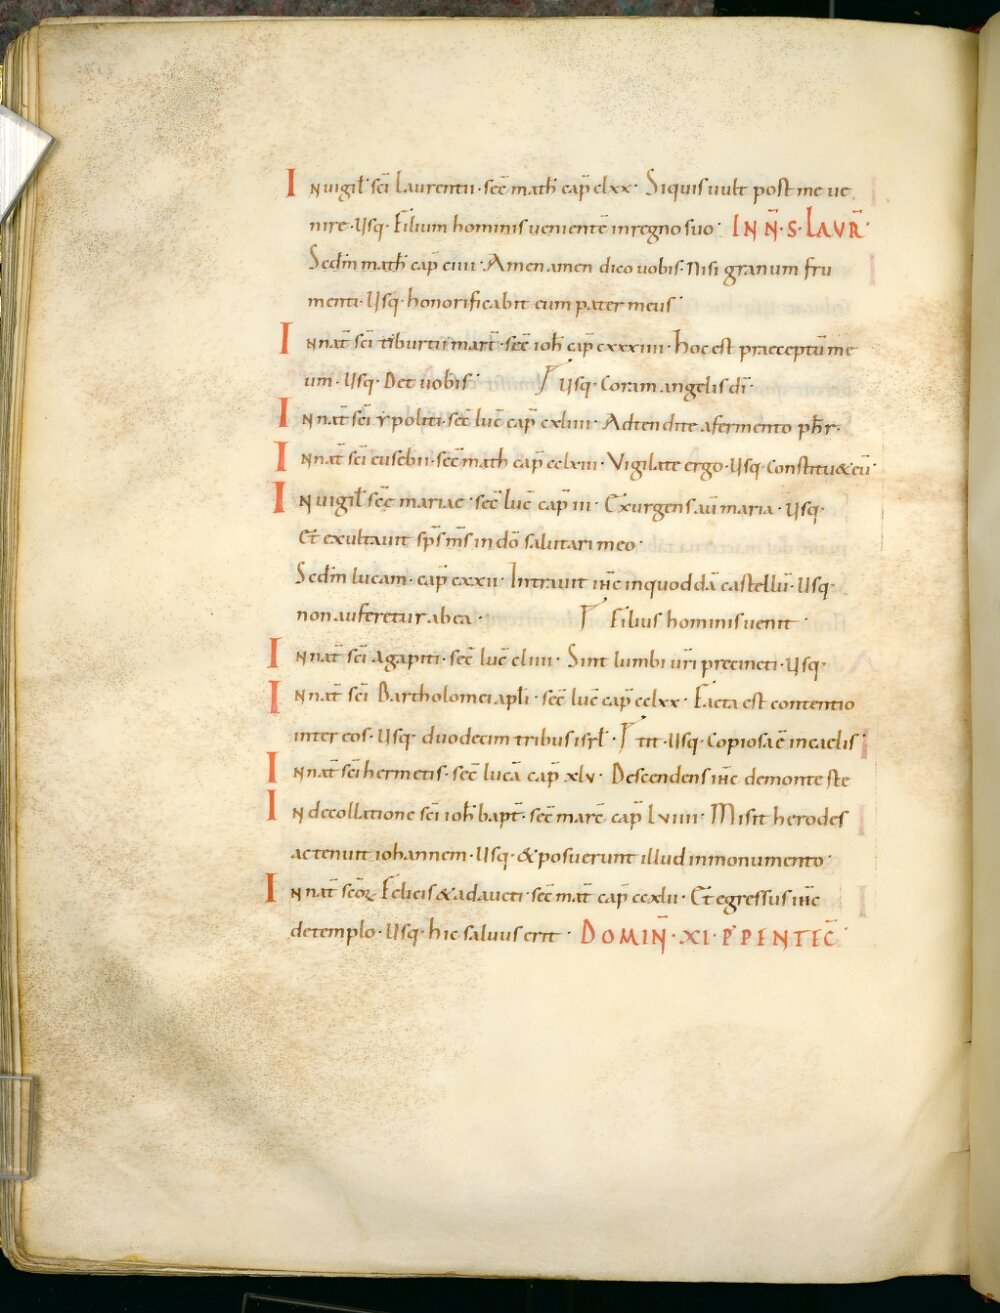 In uigil̄ sc̄i laurentii · sec̄ math̄ cap̄ clxx · Siquis uult post me ue
nire · Usq· Filium hominis uenientē in regno suo · IN N̄ · S · LAVR̄ ·
Secd̄m math̄ cap̄ ciiii · Amen amen dico uobis · Nisi granum fru
menti · Usq· honorificabit eum pater meus ·
In nat̄ sc̄i tiburtii mart̄ · sec̄ ioh̄ cap̄ cxxxiiii · Hoc est praeceptū me
um · Usq· Det uobis · Usq· Coram angelis dī ·
In nat̄ sc̄i ypoliti · sec̄ luc̄ cap̄ cxliiii · Adtendite a fermento ph̄r ·
In nat̄ sc̄i eusebii · sec̄ math̄ cap̄ cclxiii · Vigilate ergo · Usq· Constitu&eū ·
In uigil̄ sc̄e mariae · sec̄ luc̄ cap̄ iii · Exurgens aū maria · Usq·
Et exultauit sp̄s m̄s in dō salutari meo ·
Secd̄m lucam · cap̄ cxxii · Intrauit ih̄c in quoddā castellū · Usq·
non auferetur ab ea · Filius hominis uenit ·
In nat̄ sc̄i agapiti · sec̄ luc̄ cliiii · Sint lumbi ur̄i precincti · Usq·
In nat̄ sc̄i Bartholomei apl̄i · sec̄ luc̄ cap̄ cclxx · Facta est contentio
inter eos · Usq· duodecim tribus isrl̄ · tit · Usq· Copiosa ē in caelis ·
In nat̄ sc̄i hermetis · sec̄ lucā cap̄ xlv · Descendens ih̄c de monte ste
In decollatione sc̄i ioh̄ bapt̄ · sec̄ marc̄ cap̄ lviiii · Misit herodes
ac tenuit iohannem · Usq· & posuerunt illud in monumento ·
In nat̄ sc̄oꝝ Felicis & adaucti · sec̄ mat̄ cap̄ ccxlii · Et egressus ih̄c
de templo · Usq· hic saluus erit · DOMIN̄ · XI · P̄ PENTEC̄ ·